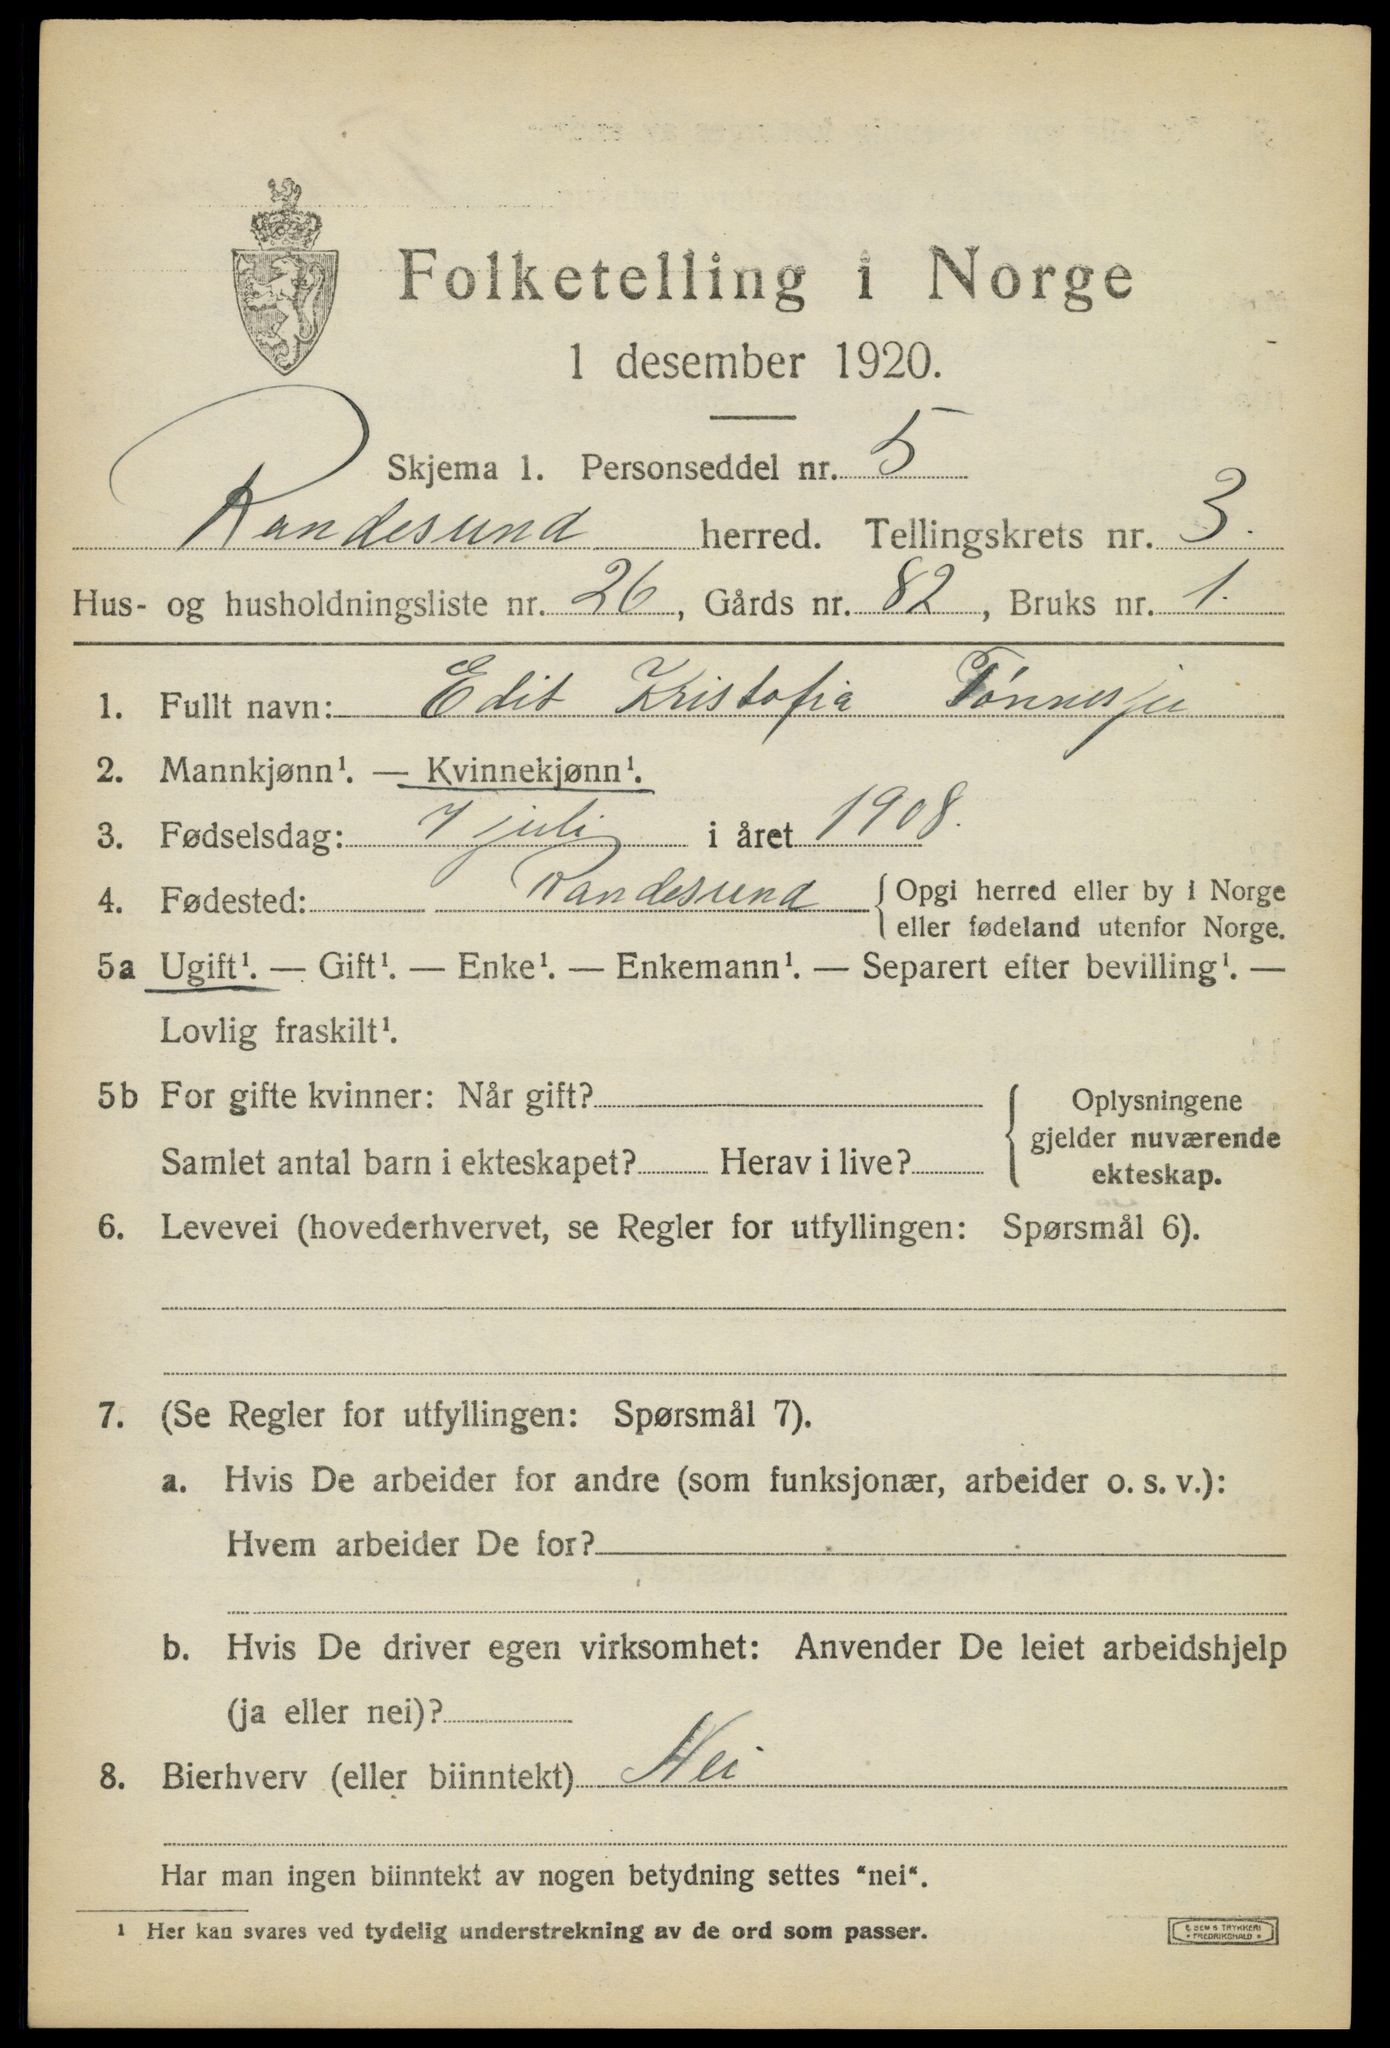 Folketelling i Norge
1 desember 1920.
Skjema 1. Personseddel nr. 5
Randesund herred. Tellingskrets nr. 3.
Hus- og husholdningsliste nr. 26, Gårds nr. 82, Bruks nr. 1.
1. Fullt navn: Edit Kristofia
2. Mannkjønn¹. — Kvinnekjønn¹.
3. Fødselsdag: 7 juli i året 1908.
4. Fødested: Randesund { Opgi herred eller by i Norge
eller fødeland utenfor Norge.
5a Ugift¹. — Gift¹. — Enke¹. — Enkemann¹. — Separert efter bevilling¹. —
Lovlig fraskilt¹.
5b For gifte kvinner: Når gift?
Samlet antal barn i ekteskapet? Herav i live?
{ Oplysningene
gjelder nuværende
ekteskap.
6. Levevei (hovederhvervet, se Regler for utfyllingen: Spørsmål 6).
7. (Se Regler for utfyllingen: Spørsmål 7).
a. Hvis De arbeider for andre (som funksjonær, arbeider o. s. v.):
Hvem arbeider De for?
b. Hvis De driver egen virksomhet: Anvender De leiet arbeidshjelp
(ja eller nei)?
8. Bierhverv (eller biinntekt) Nei
Har man ingen biinntekt av nogen betydning settes "nei".
¹ Her kan svares ved tydelig understrekning av de ord som passer.
TRYKKERI
FREDRIKSHALD